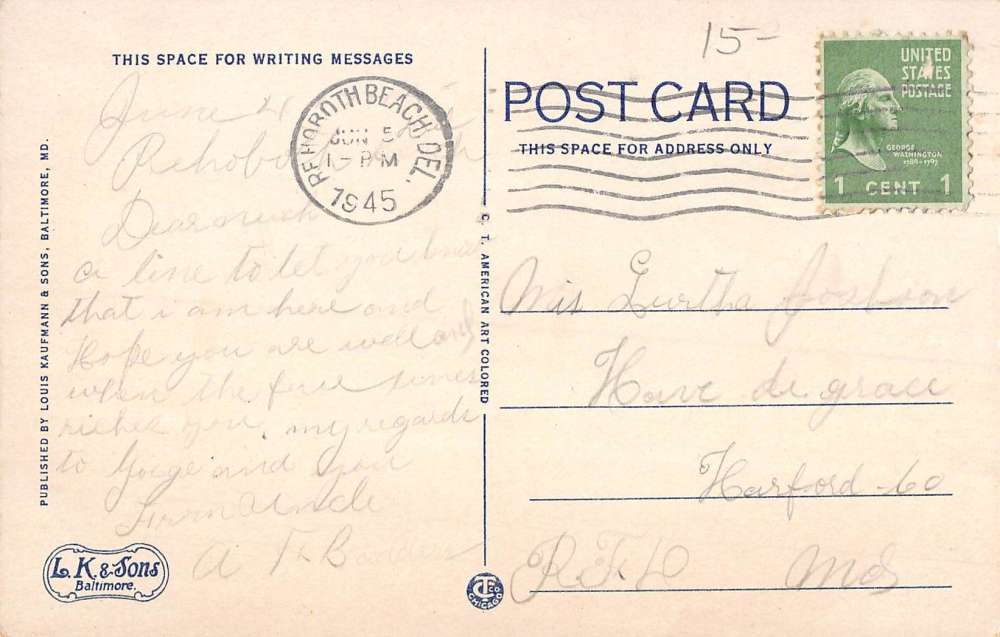 15-
UNITED
STATES
POSTAGE
GEORGE
WASHINGTON
1789-1797
1 CENT 1
THIS SPACE FOR WRITING MESSAGES
POST CARD
THIS SPACE FOR ADDRESS ONLY
REHOBOTH BEACH, DEL.
JUN 5
1-PM
1945
June 4
Dear
a line to let you know
that i am here and
Hope you are well and
when the few lines
riches you. my regards
to Goige and you
From Uncle
A
Mis Lurtha
Havre de grace
Harford Co
R.F.D Md
PUBLISHED BY LOUIS KAUFMANN & SONS, BALTIMORE, MD.
C. T. AMERICAN ART COLORED
L.K.&Sons
Baltimore.
CT CO
CHICAGO